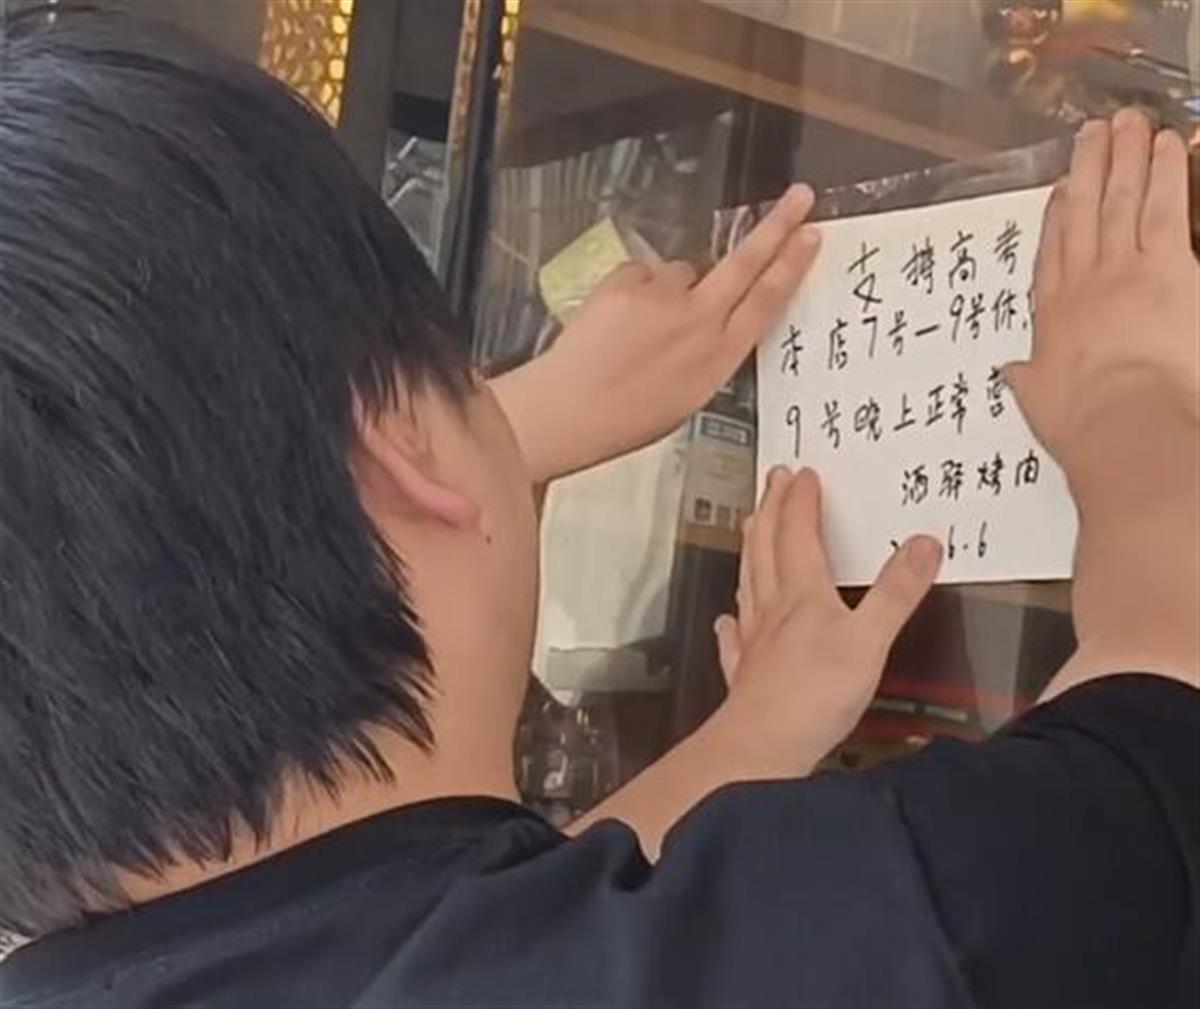 支持高考
本店7号一9号休
9号晚上正常营
酒驿烤肉
6.6